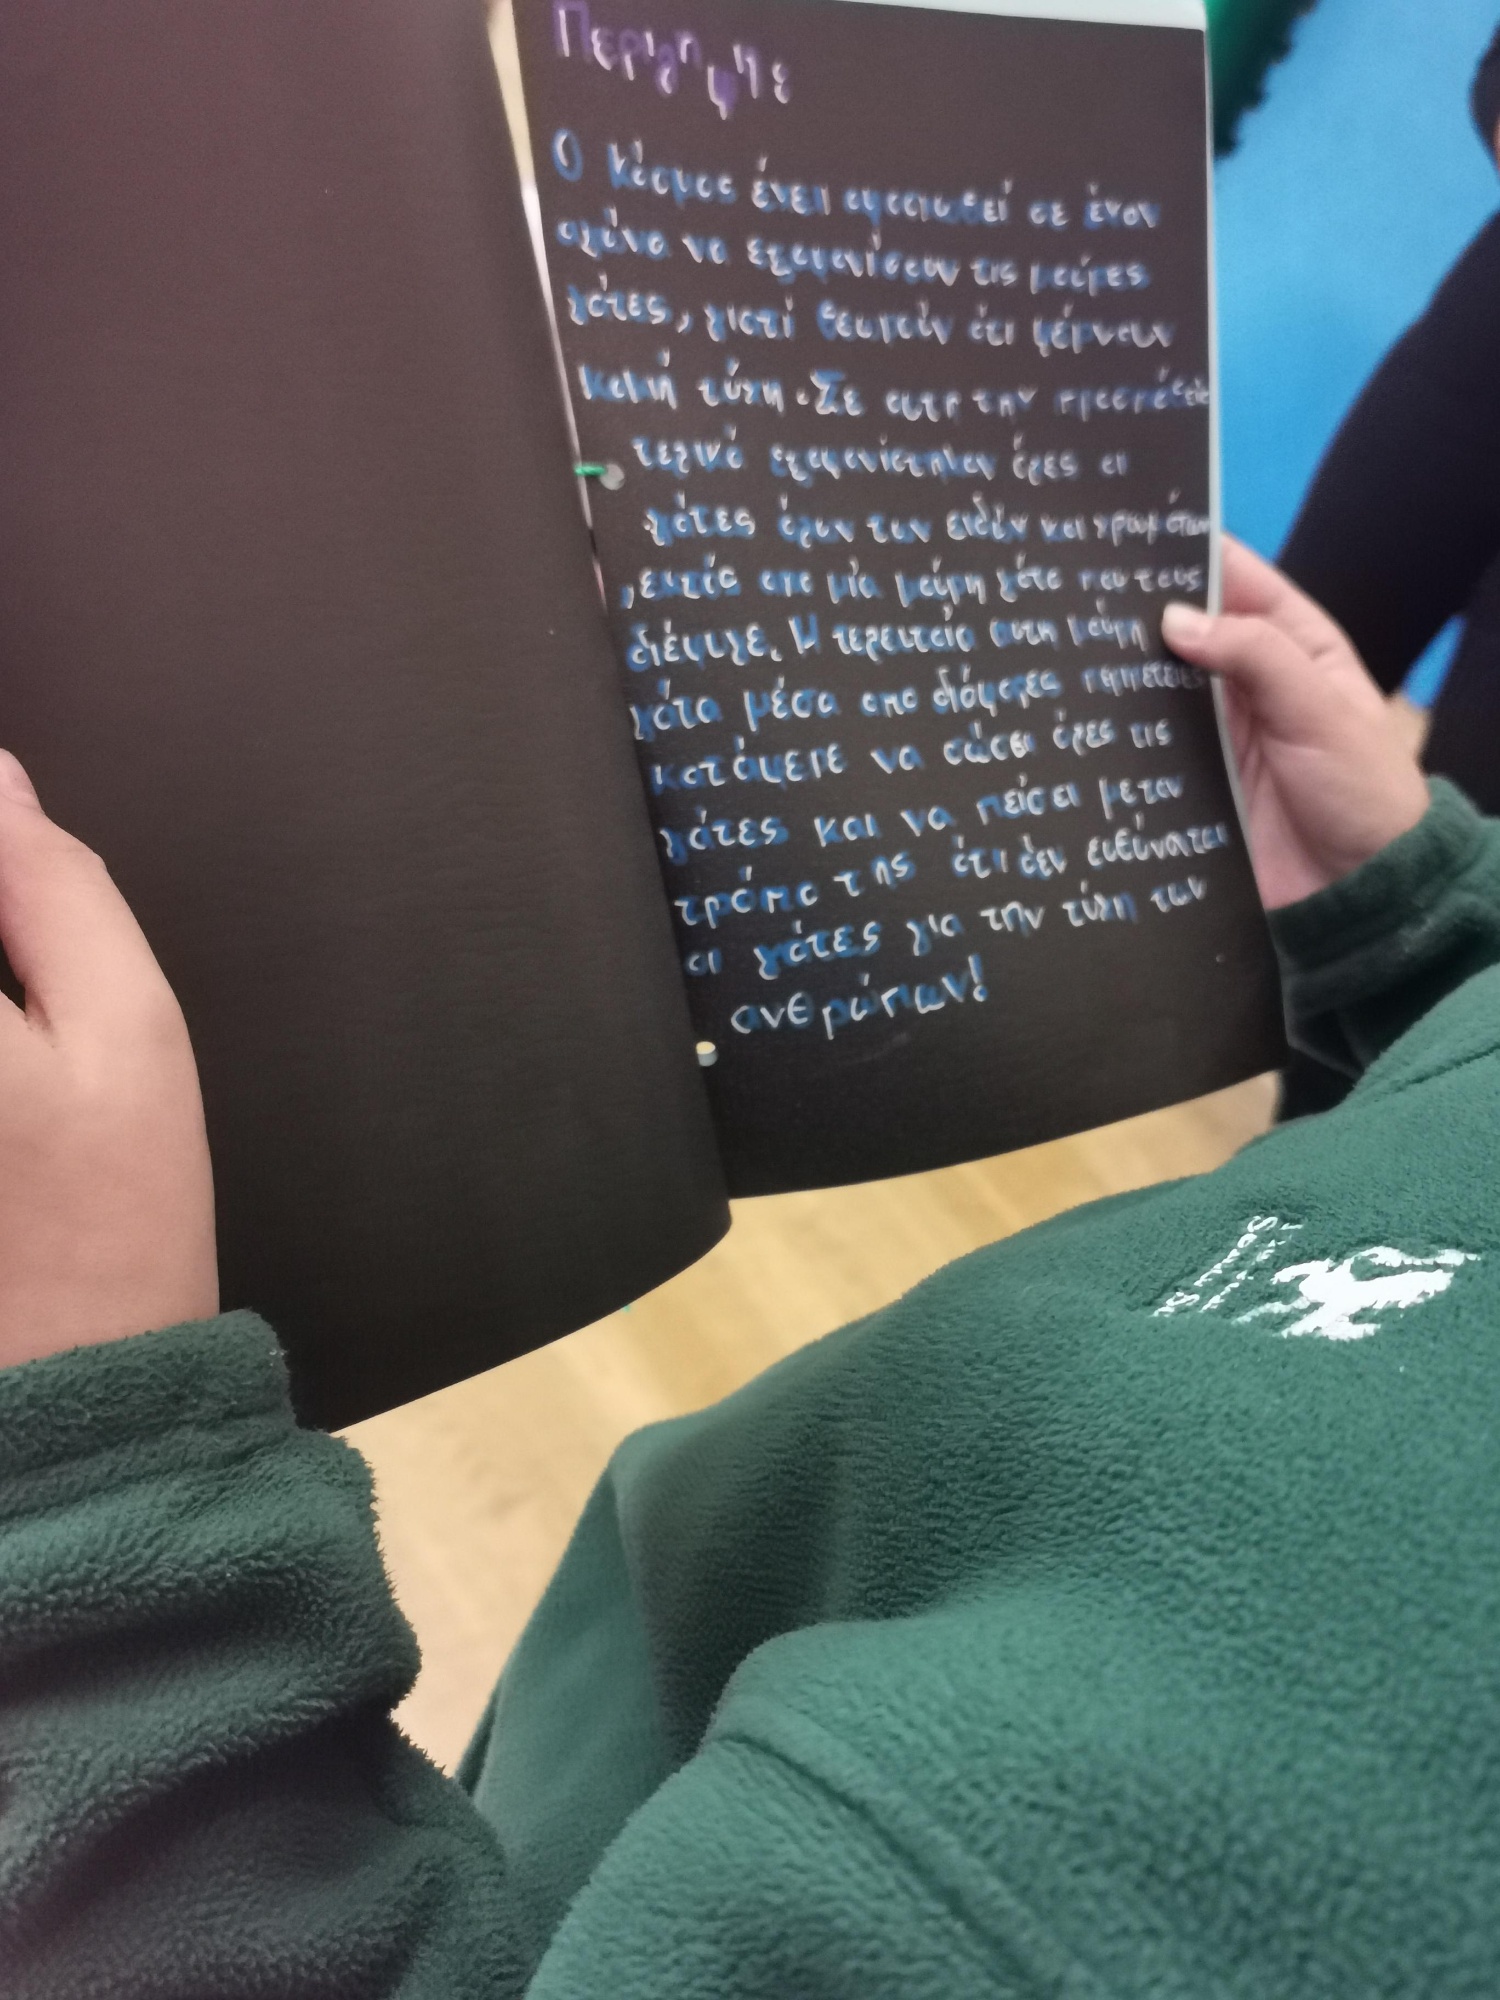 Περιληψης
Ο Κόσμος έχει αφοσιωθεί σε έναν
αγώνα να εξαφανίσουν τις μαύρες
γάτες, γιατί θεωρούν ότι φέρνουν
κακή τύχη. Σε αυτη την προσπάθεια
τελικά εξαφανίστηκαν όλες οι
γάτες όλων των ειδών και χρωμάτων
,εκτός απο μία μαύρη γάτα που τους
διέφυγε. Η τελευταία αυτη μαύρη
γάτα μέσα απο διάφορες περιπέτειες
κατάφερε να σώσει όλες τις
γάτες και να πείσει με τον
τρόπο της ότι δεν ευθύνονται
οι γάτες για την τύχη των
ανθρώπων!